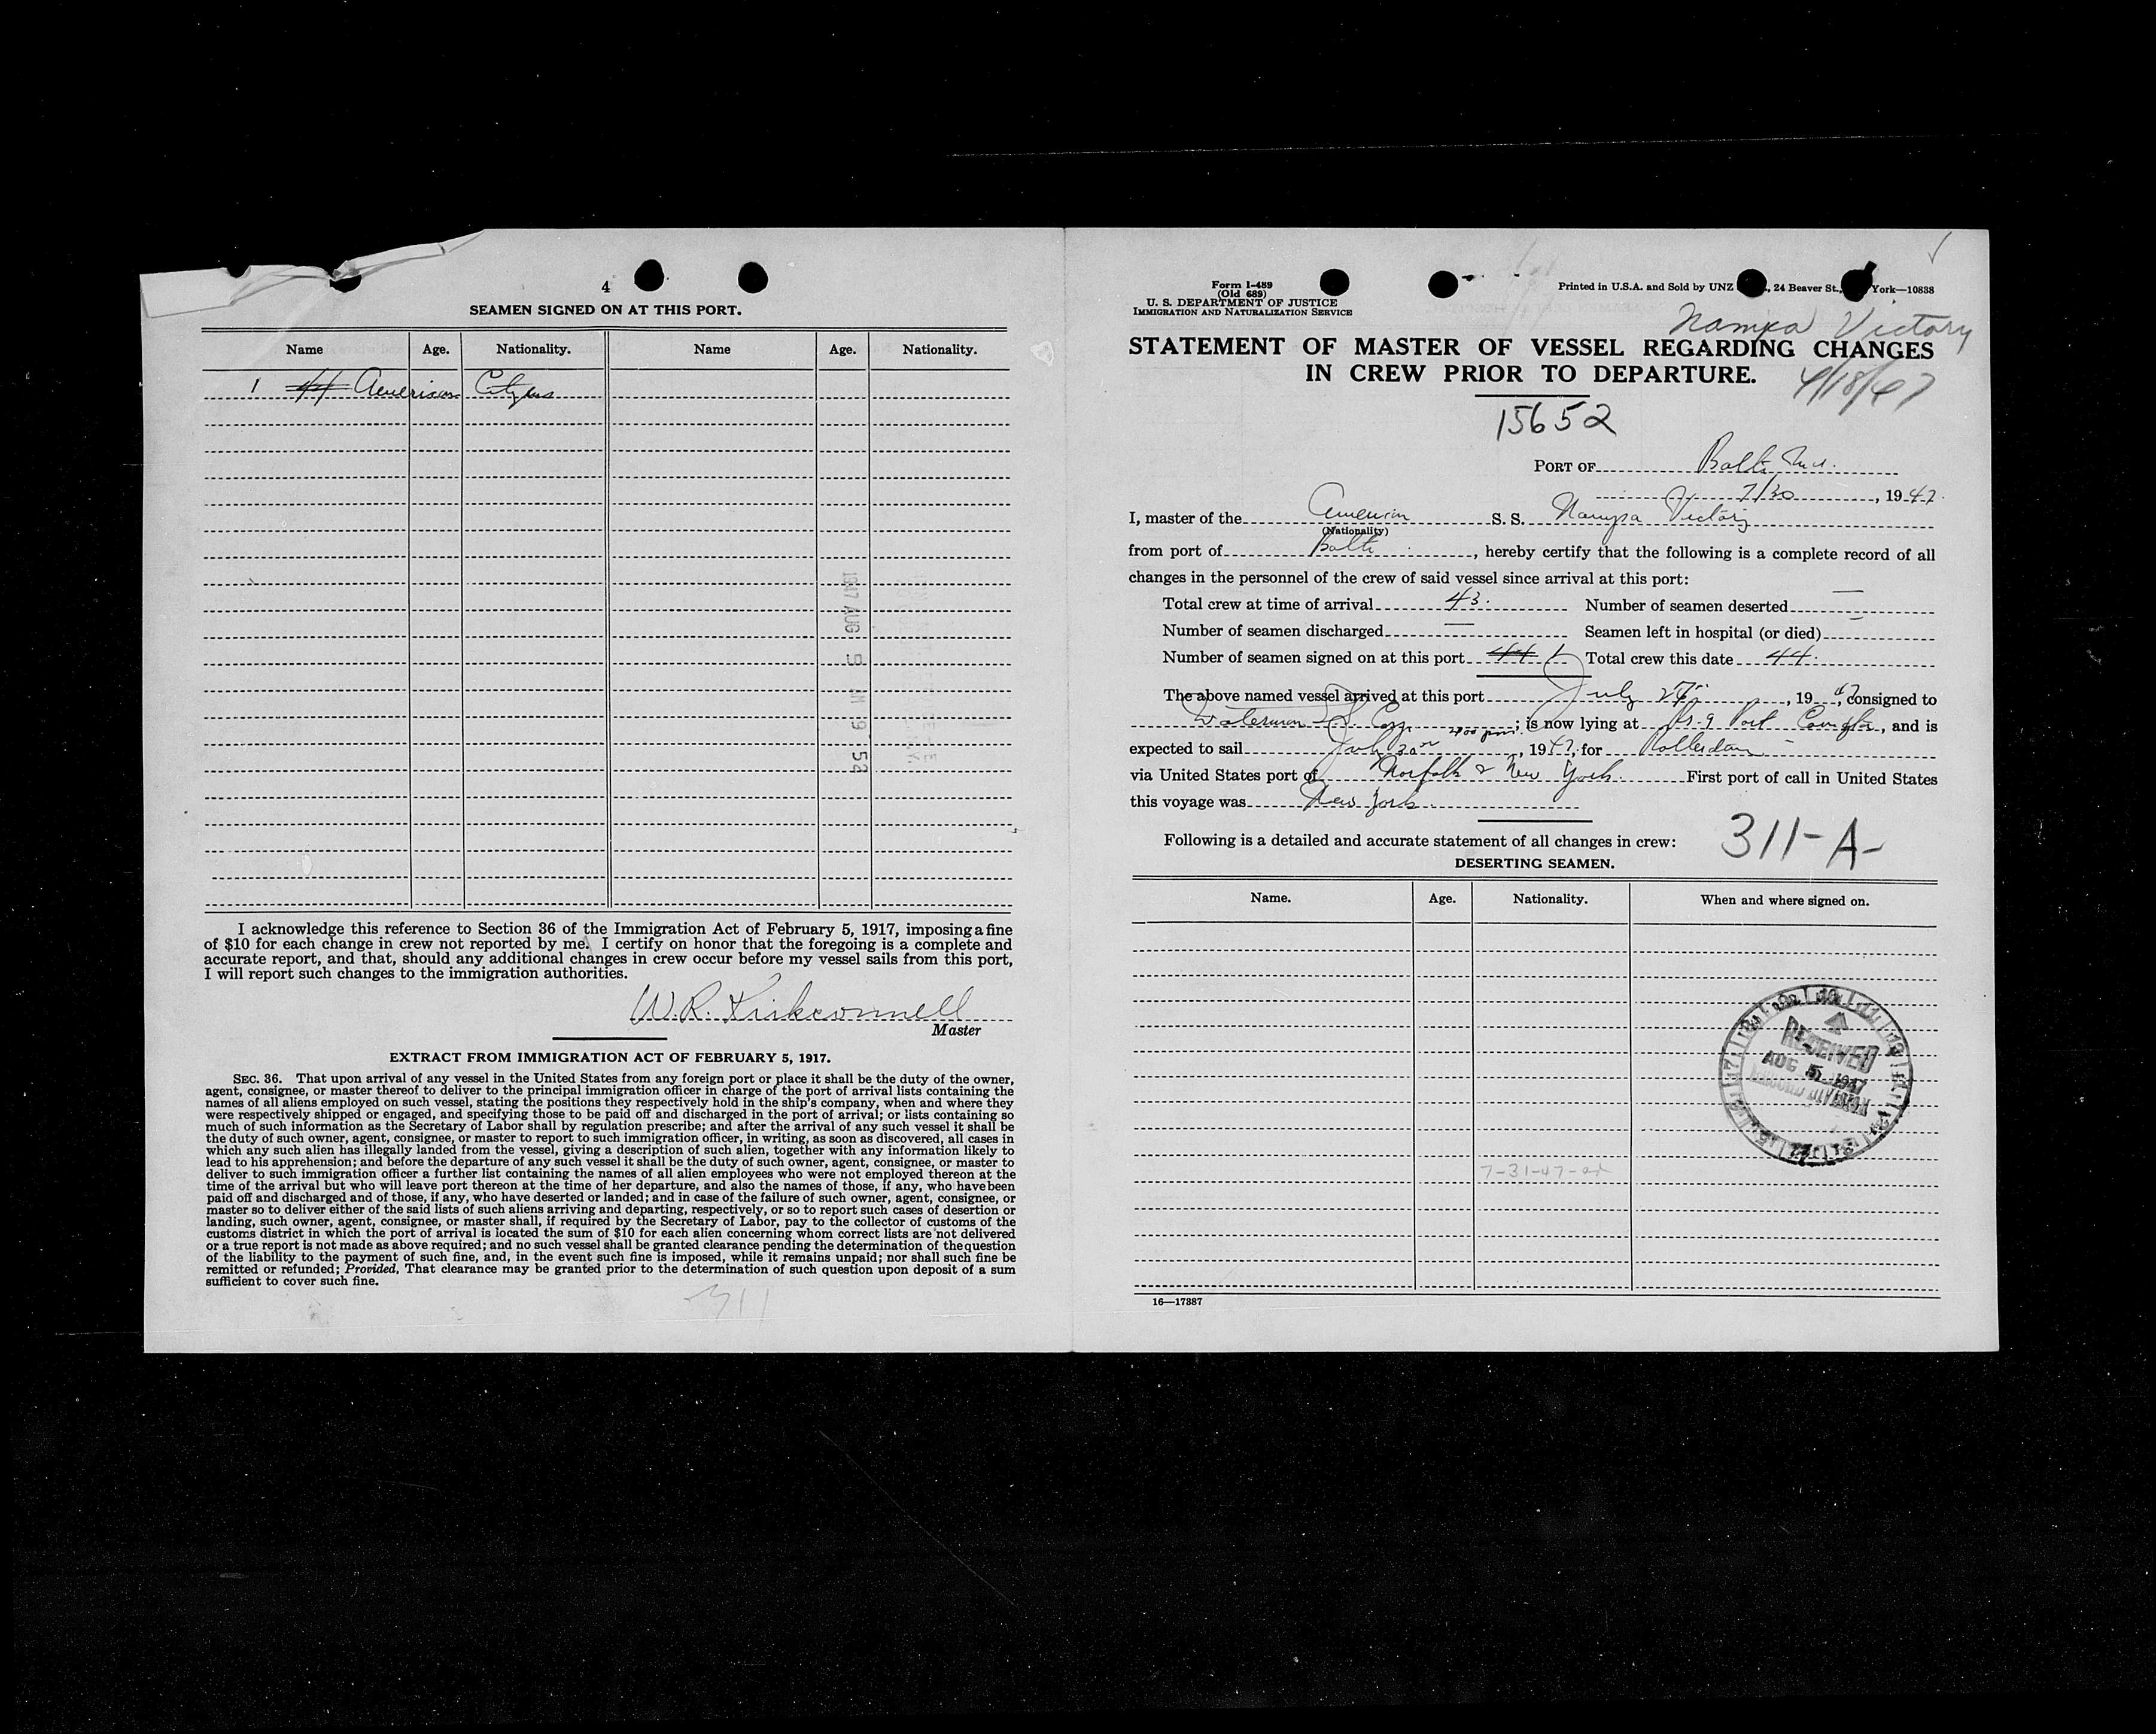 4
SEAMEN SIGNED ON AT THIS PORT.
Name Age. Nationality. Name Age. Nationality.
1 44 American Citzens
1947 AUG 5 M 9 52
I acknowledge this reference to Section 36 of the Immigration Act of February 5, 1917, imposing a fine
of $10 for each change in crew not reported by me. I certify on honor that the foregoing is a complete and
accurate report, and that, should any additional changes in crew occur before my vessel sails from this port,
I will report such changes to the immigration authorities.
W.R. Kirkconnell
Master
EXTRACT FROM IMMIGRATION ACT OF FEBRUARY 5, 1917.
SEC. 36. That upon arrival of any vessel in the United States from any foreign port or place it shall be the duty of the owner,
agent, consignee, or master thereof to deliver to the principal immigration officer in charge of the port of arrival lists containing the
names of all aliens employed on such vessel, stating the positions they respectively hold in the ship's company, when and where they
were respectively shipped or engaged, and specifying those to be paid off and discharged in the port of arrival; or lists containing so
much of such information as the Secretary of Labor shall by regulation prescribe; and after the arrival of any such vessel it shall be
the duty of such owner, agent, consignee, or master to report to such immigration officer, in writing, as soon as discovered, all cases in
which any such alien has illegally landed from the vessel, giving a description of such alien, together with any information likely to
lead to his apprehension; and before the departure of any such vessel it shall be the duty of such owner, agent, consignee, or master to
deliver to such immigration officer a further list containing the names of all alien employees who were not employed thereon at the
time of the arrival but who will leave port thereon at the time of her departure, and also the names of those, if any, who have been
paid off and discharged and of those, if any, who have deserted or landed; and in case of the failure of such owner, agent, consignee, or
master so to deliver either of the said lists of such aliens arriving and departing, respectively, or so to report such cases of desertion or
landing, such owner, agent, consignee, or master shall, if required by the Secretary of Labor, pay to the collector of customs of the
customs district in which the port of arrival is located the sum of $10 for each alien concerning whom correct lists are not delivered
or a true report is not made as above required; and no such vessel shall be granted clearance pending the determination of the question
of the liability to the payment of such fine, and, in the event such fine is imposed, while it remains unpaid; nor shall such fine be
remitted or refunded; Provided, That clearance may be granted prior to the determination of such question upon deposit of a sum
sufficient to cover such fine.
311
Form I-489
(Old 689)
U. S. DEPARTMENT OF JUSTICE
IMMIGRATION AND NATURALIZATION SERVICE
Printed in U.S.A. and Sold by UNZ , 24 Beaver St., York—10838
Nampa Victory
STATEMENT OF MASTER OF VESSEL REGARDING CHANGES
IN CREW PRIOR TO DEPARTURE.
4/18/47
15652
PORT OF Balto Md.
7/30, 1947.
I, master of the American S. S. Nampa Victory
(Nationality)
from port of Balto, hereby certify that the following is a complete record of all
changes in the personnel of the crew of said vessel since arrival at this port:
Total crew at time of arrival 43. Number of seamen deserted —
Number of seamen discharged — Seamen left in hospital (or died) —
Number of seamen signed on at this port 44 1 Total crew this date 44.
The above named vessel arrived at this port July , 1947, consigned to
Waterman S.S. Corp.; is now lying at Pr. 9 Port Covington, and is
expected to sail July 30th, 1947, for Rotterdam
via United States port of Norfolk & New York. First port of call in United States
this voyage was New York.
Following is a detailed and accurate statement of all changes in crew:
311-A-
DESERTING SEAMEN.
Name. Age. Nationality. When and where signed on.
RECEIVED
AUG 5 1947
7-31-47-
16—17387